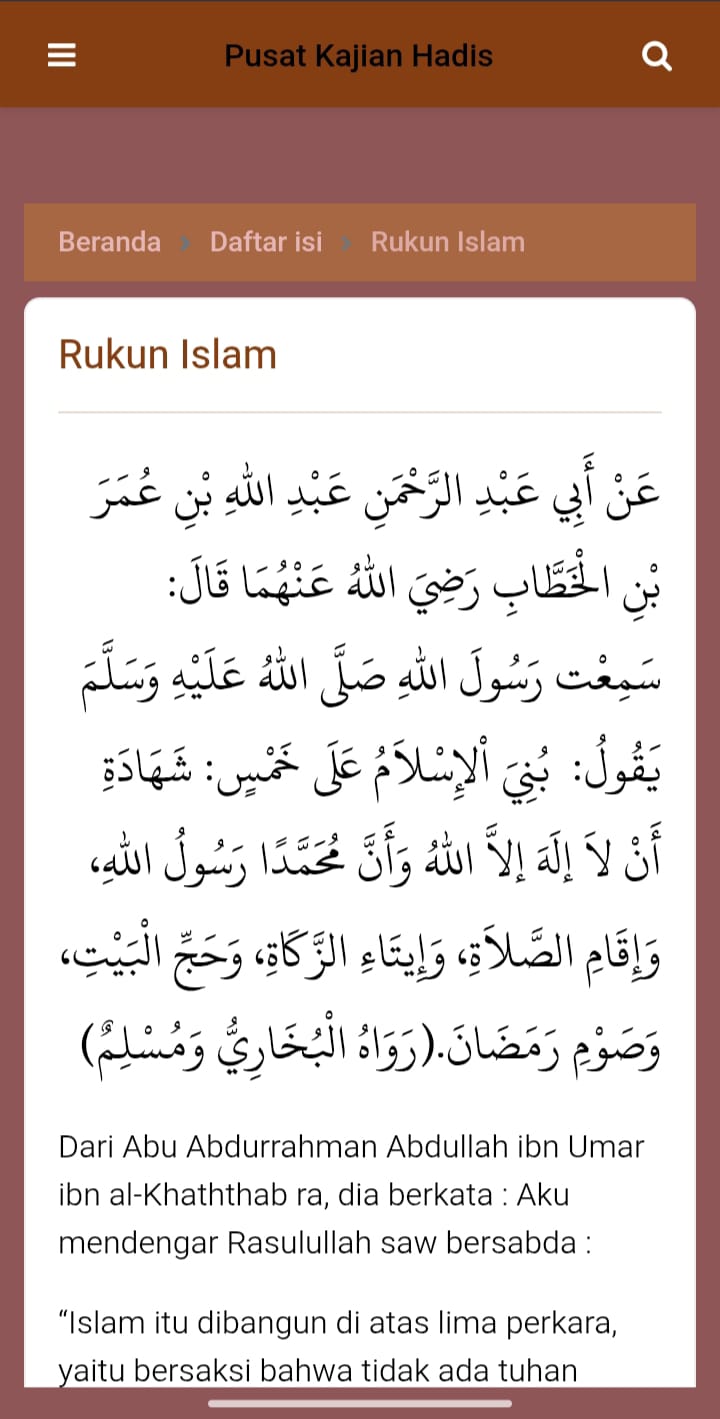 Pusat Kajian Hadis
Beranda › Daftar isi › Rukun Islam
Rukun Islam
عَنْ أَبِي عَبْدِ الرَّحْمَنِ عَبْدِ اللهِ بْنِ عُمَرَ
بْنِ الْخَطَّابِ رَضِيَ اللهُ عَنْهُمَا قَالَ:
سَمِعْت رَسُولَ اللهِ صَلَّى اللهُ عَلَيْهِ وَسَلَّمَ
يَقُولُ: بُنِيَ اْلإِسْلاَمُ عَلَى خَمْسٍ: شَهَادَةِ
أَنْ لاَ إِلَهَ إِلاَّ اللهُ وَأَنَّ مُحَمَّدًا رَسُولُ اللهِ،
وَإِقَامِ الصَّلاَةِ، وَإِيتَاءِ الزَّكَاةِ، وَحَجِّ الْبَيْتِ،
وَصَوْمِ رَمَضَانَ.(رَوَاهُ الْبُخَارِيُّ وَمُسْلِمٌ)
Dari Abu Abdurrahman Abdullah ibn Umar
ibn al-Khaththab ra, dia berkata : Aku
mendengar Rasulullah saw bersabda :
“Islam itu dibangun di atas lima perkara,
yaitu bersaksi bahwa tidak ada tuhan